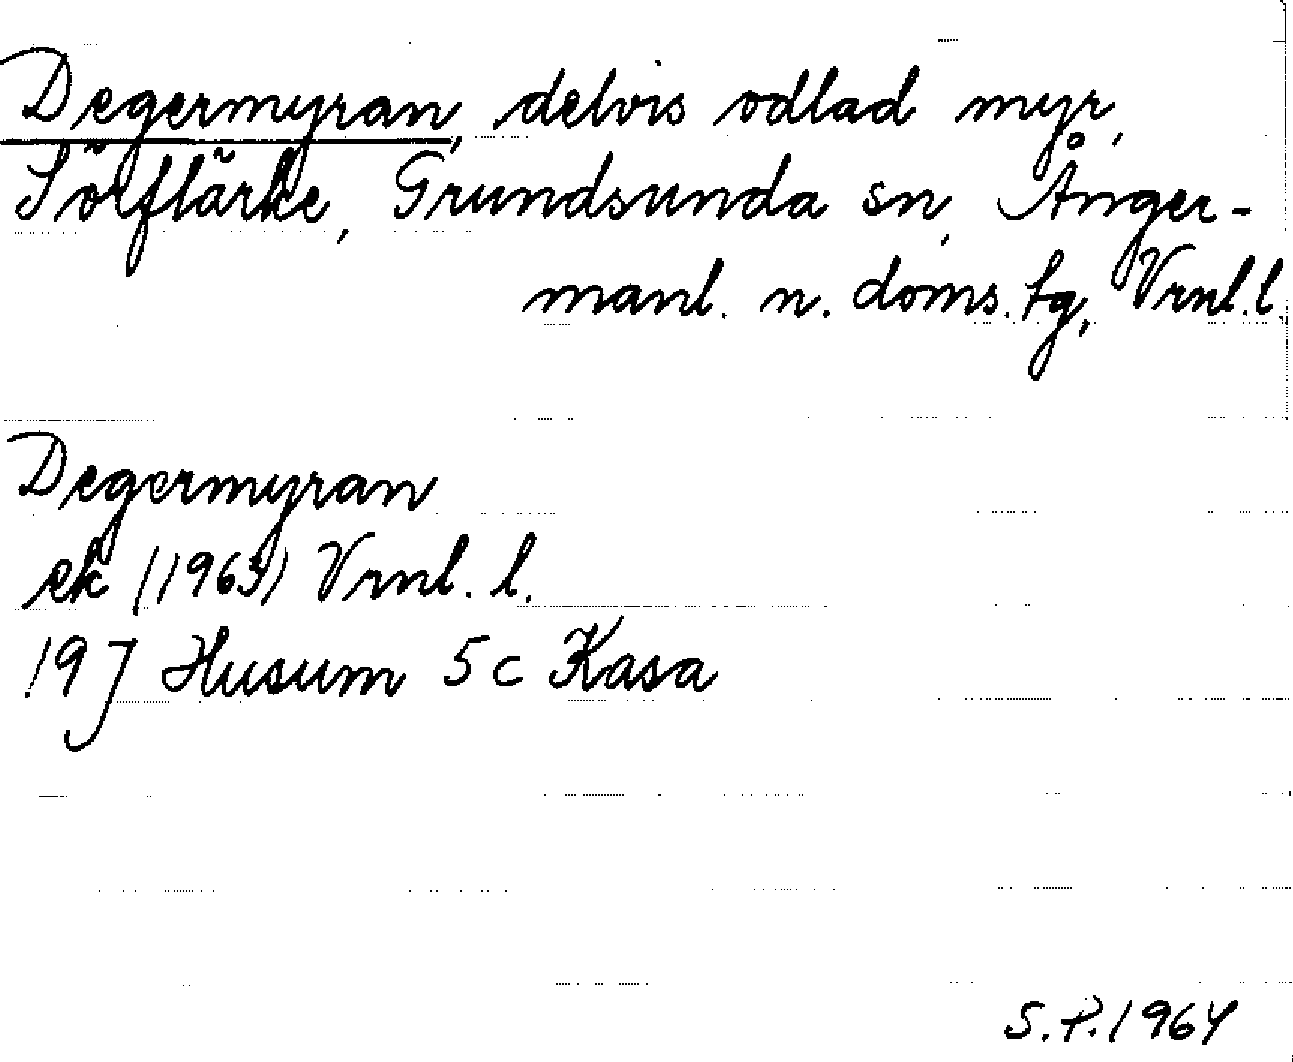 Degermyran, delvis odlad myr,
Sörflärke, Grundsunda sn, Ånger-
manl. n. doms. fg, Vrnl. l.
Degermyran
ek (1963) Vrnl. l.
19 J Husum 5 c Kasa
S.P. 1964